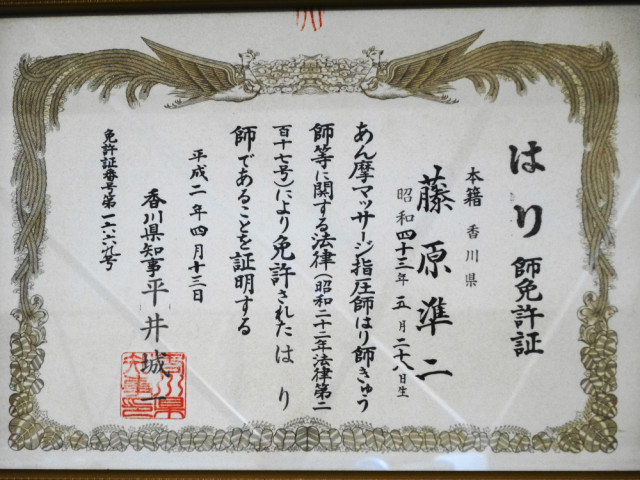 はり師免許証
本籍 香川県
藤原準二
昭和四十三年五月二十八日生
あん摩マッサージ指圧師はり師きゅう
師等に関する法律(昭和二十二年法律第二
百十七号)により免許されたはり
師であることを証明する
平成二年四月十三日
香川県知事 平井城一
免許証番号第 号